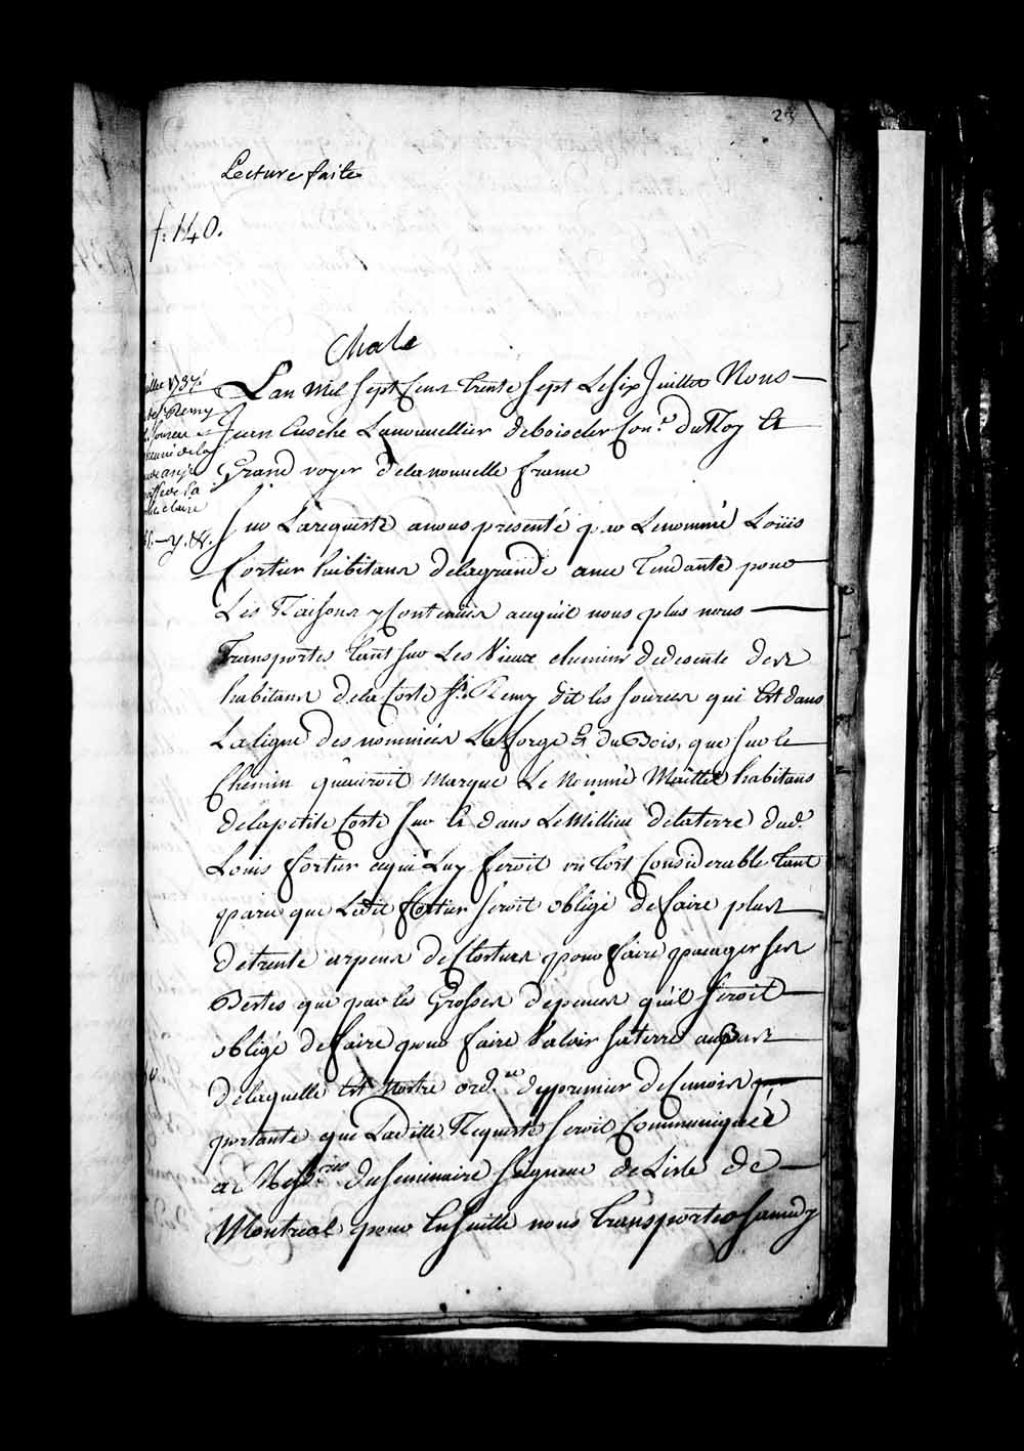 23
Lecture faite
f: 140.
Chale
juillet 1737
Lan Mil Sept Cens trente Sept Le Six Juillet Nous
St Remy
Jean Eusebe Lanouuellier de boiscler Con.er du Roy Et
Grand voyer de la nouuelle france
claire
Sur La requeste a nous presenté par Le nommé Loüis
fortier habitans de la grande ance Tendante pour
Les Raisons y Contenües a ce quil nous plus nous
Transporter tant sur Les Vieux chemin de desente des
habitans de la Coste St Remy dit les sources qui Est dans
La ligne des nommées La forge Et du Bois, que sur le
Chemin quauroit marqué Le Nommé Maillet habitans
de la petite Coste sur Et dans Le Millieu de la terre dud.
Louis fortier a qui Luy feroit un tort Considerable tant
parce que Ledit fortier seroit obligé de faire plus
de trente arpens de Clostures pour faire pacager ses
Bestes que par les Grosses depences quil seroit
obligé de faire pour faire Valoir sa terre au bas
de laquelle Est Nostre ord.ce du premier de Ce mois
portante que Laditte Requeste seroit Communiquée
a Mess.rs du Seminaire Seigneur de Lisle de
Montreal pour Ensuitte nous transporter samedy